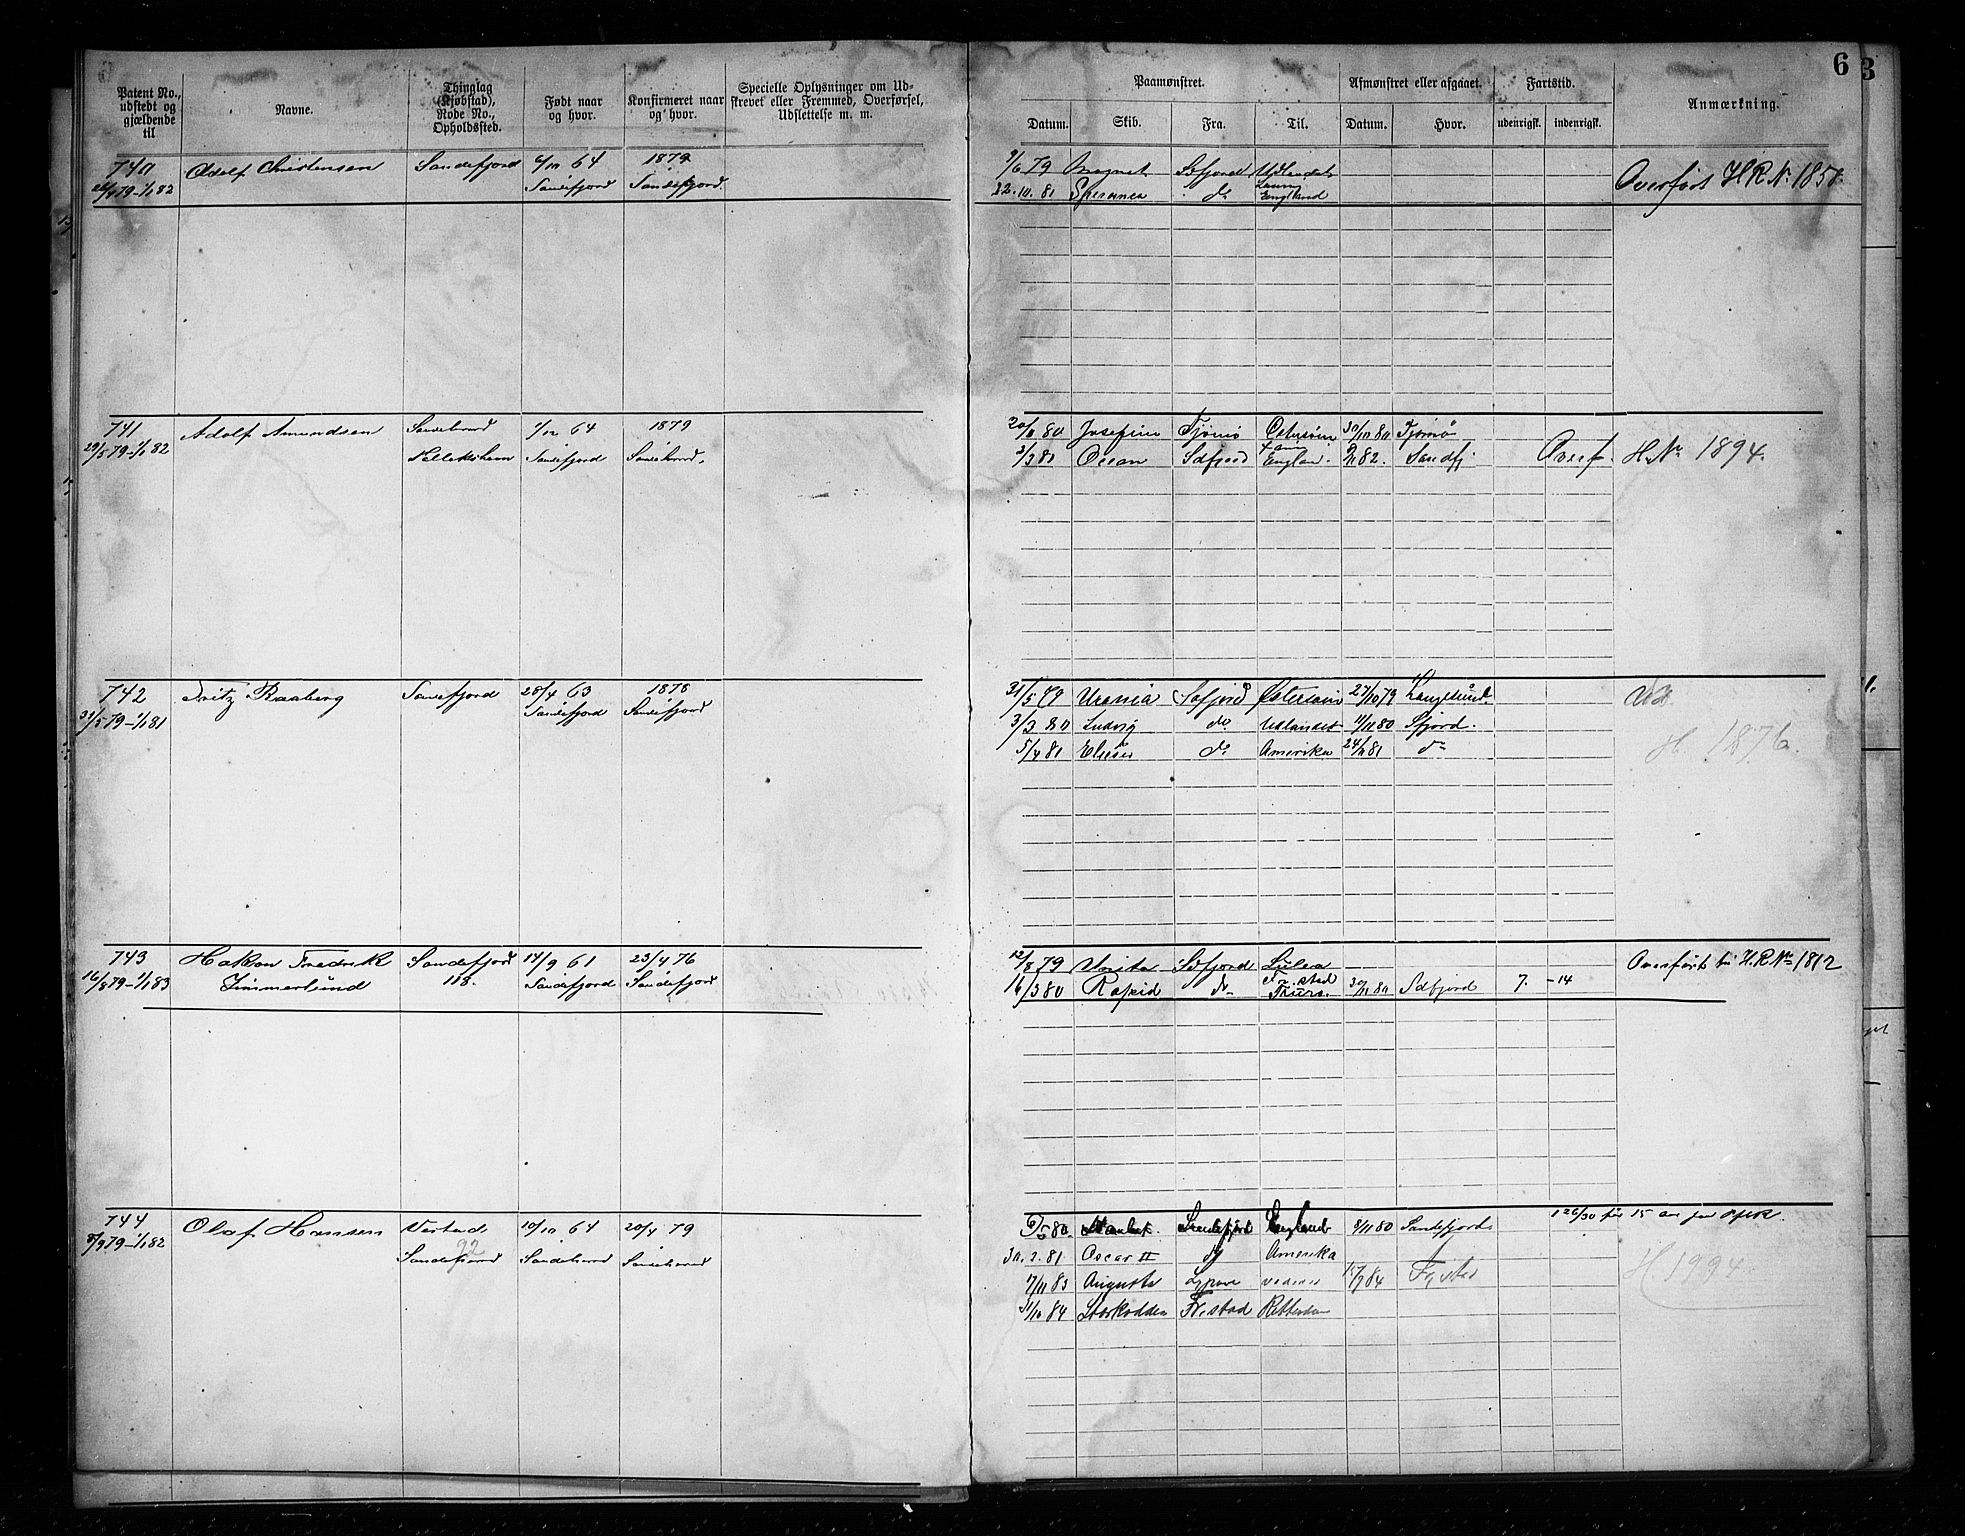 6
3
Patent No., udstedt og gjældende til
Navne.
Thinglag (Kjøbstad), Rode No., Opholdssted.
Født naar og hvor.
Konfirmeret naar og hvor.
Specielle Oplysninger om Udskrevet eller Fremmed, Overførsel, Udslettelse m. m.
Paamønstret.
Afmønstret eller afgaaet.
Fartstid.
Anmærkning.
Datum.
Skib.
Fra.
Til.
Datum.
Hvor.
udenrigsk.
indenrigsk.
740 Adolf Christensen Sandefjord 6/10 64 1879 9/6 79 Magnet Sfjord Udlandet
79-1/1 82 Sandefjord Sandefjord 22.10.81 Speranza do England Overført H R No 1850.
741 Adolf Amundsen Sandeherred 1/12 64 1879 80 Josefine Tjømø Østersøen 30/10 80 Tjømø
29/5 79-1/1 82 Sandefjord Sandeherred. 2/3 81 Ocean Sdfjord England. 82. Sandfj. Overf. H No 1894.
742 Fritz Raaberg Sandefjord 28/4 63 1878 31/5 79 Urania Sdfjord Østersøen 27/10 79 Langesund.
31/5 79-1/1 81 Sandefjord Sandefjord 3/3 80 Ludvig do Udlandet 11/11 80 Sfjord.
5/4 81 Elieser do Amerika 24/11 81 do H. 1876.
743 Hakon Fredrik Sandefjord 14/9 61 23/4 76 12/8 79 Sdfjord Lulea Overført til H.R No 1812
16/8 79-1/1 83 Zimmerlund 118. Sandefjord Sandefjord 16/3 80 Rapid do Fr.stad 30/11 80 Sdfjord 7. -14
744 Olaf Hansen 10/10 64 20/4 79 80 Sandefjord England 8/11 80 Sandefjord
79-1/1 82 Sandeherred 92 Sandeherred Sandeherred 30.3.81 Oscar II do Amerika
17/11 83 Augusta 84 Fr.stad H. 1994
31/10 84 Stærkodder Fr.stad Rotterdam